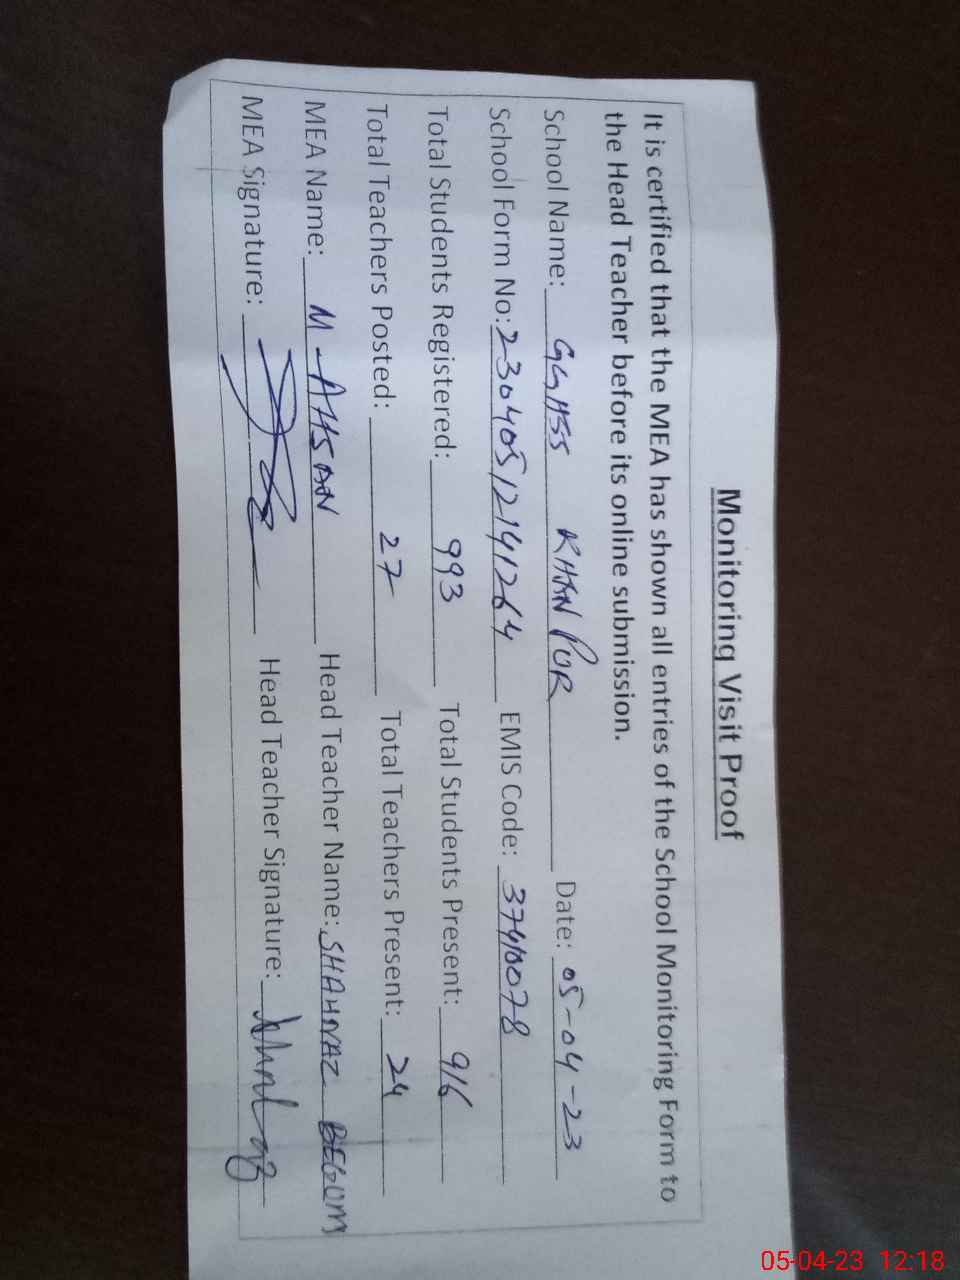 Monitoring Visit Proof
It is certified that the MEA has shown all entries of the School Monitoring Form to
the Head Teacher before its online submission.
School Name: GGHSS KHAN PUR Date: 05-04-23
School Form No: 23040512141264 EMIS Code: 37410078
Total Students Registered: 993 Total Students Present: 916
Total Teachers Posted: 27 Total Teachers Present: 24
MEA Name: M-AHSAN Head Teacher Name: SHAHNAZ BEGUM
MEA Signature: Head Teacher Signature:
05-04-23 12:18